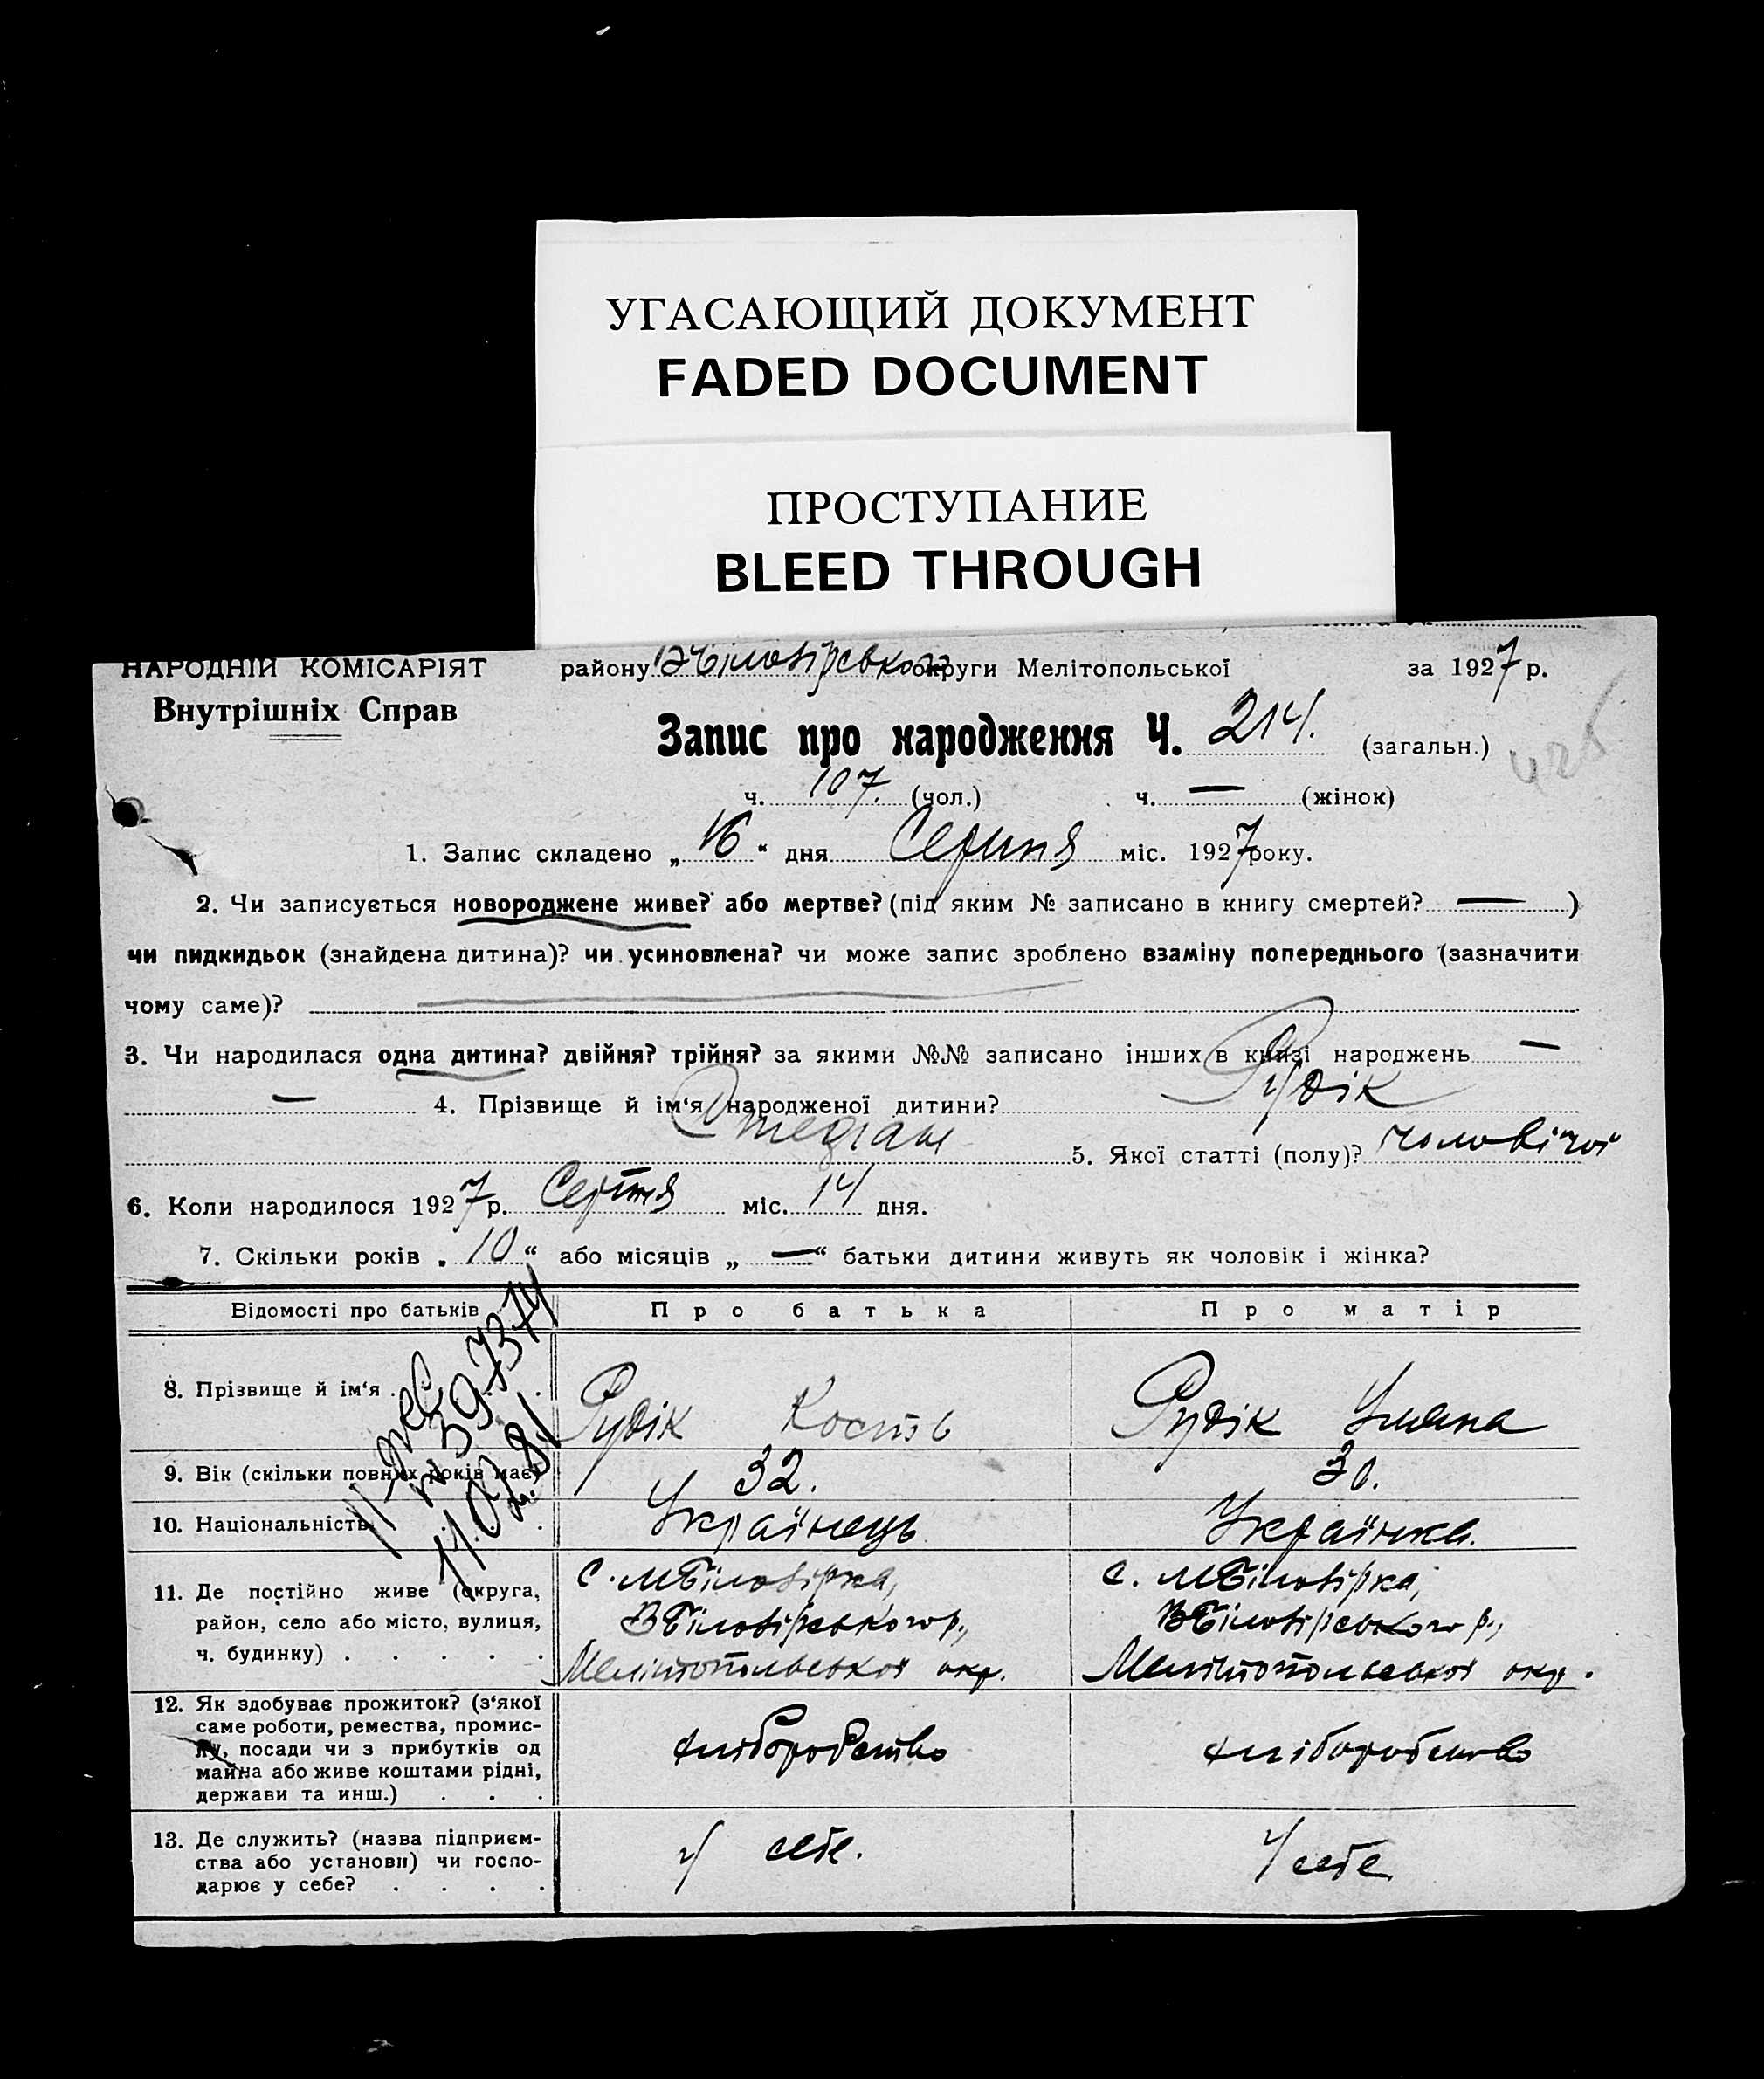 УГАСАЮЩИЙ ДОКУМЕНТ
FADED DOCUMENT
ПРОСТУПАНИЕ
BLEED THROUGH
НАРОДНІЙ КОМІСАРІЯТ
Внутрішніх Справ
району ВБілозірського округи Мелітопольської за 1927 р.
Запис про народження Ч. 214. (загальн.)
ч. 107. (чол.) ч. — (жінок)
1. Запис складено „16“ дня Серпня міс. 1927 року.
2. Чи записується новороджене живе? або мертве? (під яким № записано в книгу смертей? — )
чи пидкидьок (знайдена дитина)? чи усиновлена? чи може запис зроблено взаміну попереднього (зазначити
чому саме)?
3. Чи народилася одна дитина? двійня? трійня? за якими №№ записано інших в книзі народжень —
— 4. Прізвище й ім‘я народженої дитини? Рудік
Степан 5. Якої статті (полу)? чоловічої
6. Коли народилося 1927 р. Серпня міс. 14 дня.
7. Скільки років „10“ або місяців „—“ батьки дитини живуть як чоловік і жінка?
Відомості про батьків Про батька Про матір
8. Прізвище й ім‘я . Рудік Кость Рудік Уляна
9. Вік (скільки повних років має) 32. 30.
10. Національність Українець Українка.
11. Де постійно живе (округа,
район, село або місто, вулиця,
ч. будинку) . . . . .
с. МБілозірка,
ВБілозірського р.,
Мелітопольської окр.
с. МБілозірка,
ВБілозірського р.,
Мелітопольської окр.
12. Як здобуває прожиток? (з‘якої
саме роботи, ремества, промис-
лу, посади чи з прибутків од
майна або живе коштами рідні,
держави та инш.) . . .
хліборобство хліборобство
13. Де служить? (назва підприєм-
ства або установи) чи госпо-
дарює у себе? . . . .
у себе. у себе